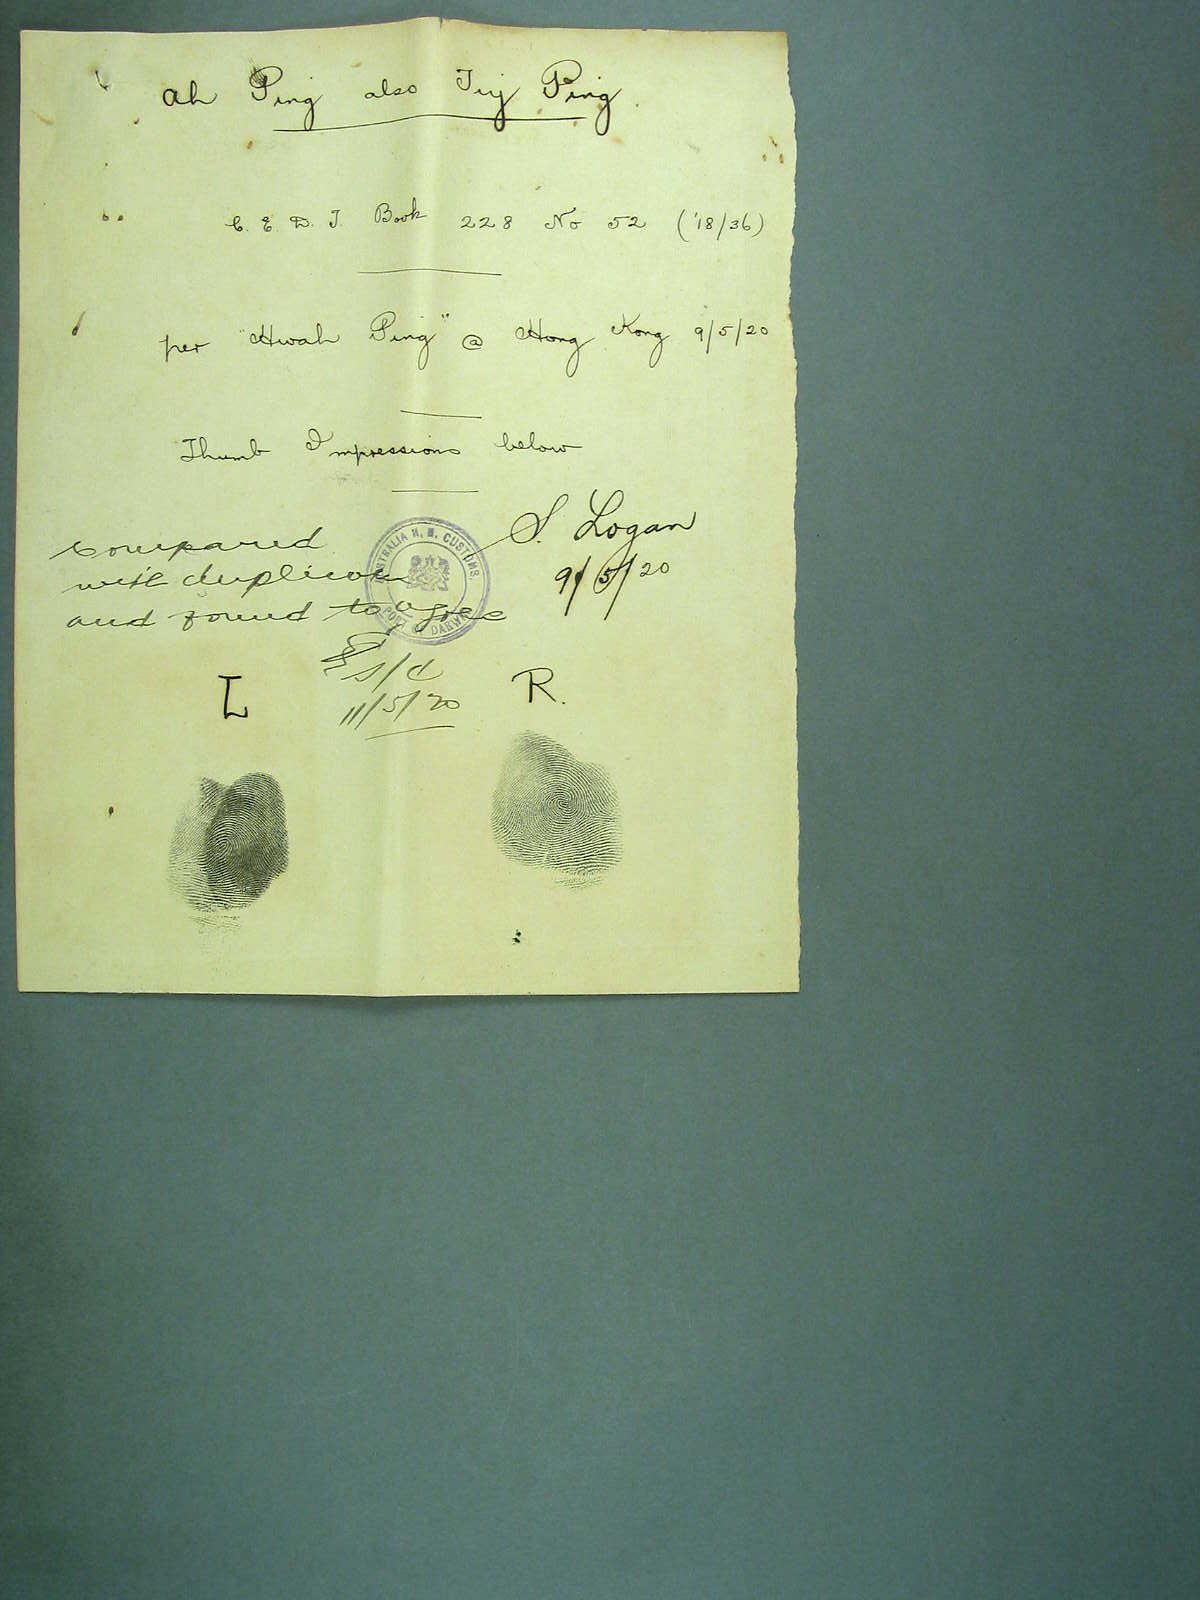 Ah Ping also Tuj Ping
C. E. D. T. Book 228 No 52 ('18/36)
per "Hwah Ping" @ Hong Kong 9/5/20
Thumb Impressions below
S. Logan
9/5/20
Compared
with duplicate
and found to agree
AUSTRALIA H. M. CUSTOMS.
PORT OF DARWIN
11/5/20
L R.